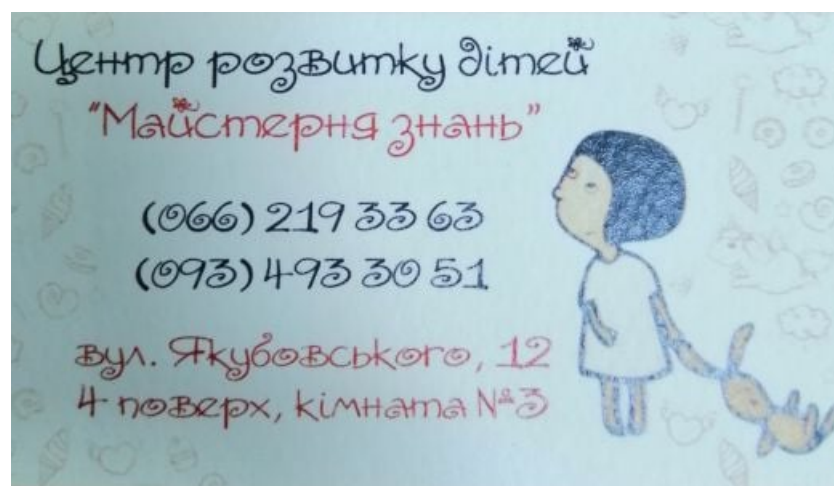 Центр розвитку дітей
"Майстерня знань"
(066) 219 33 63
(093) 493 30 51
вул. Якубовського, 12
4 поверх, кімната №3